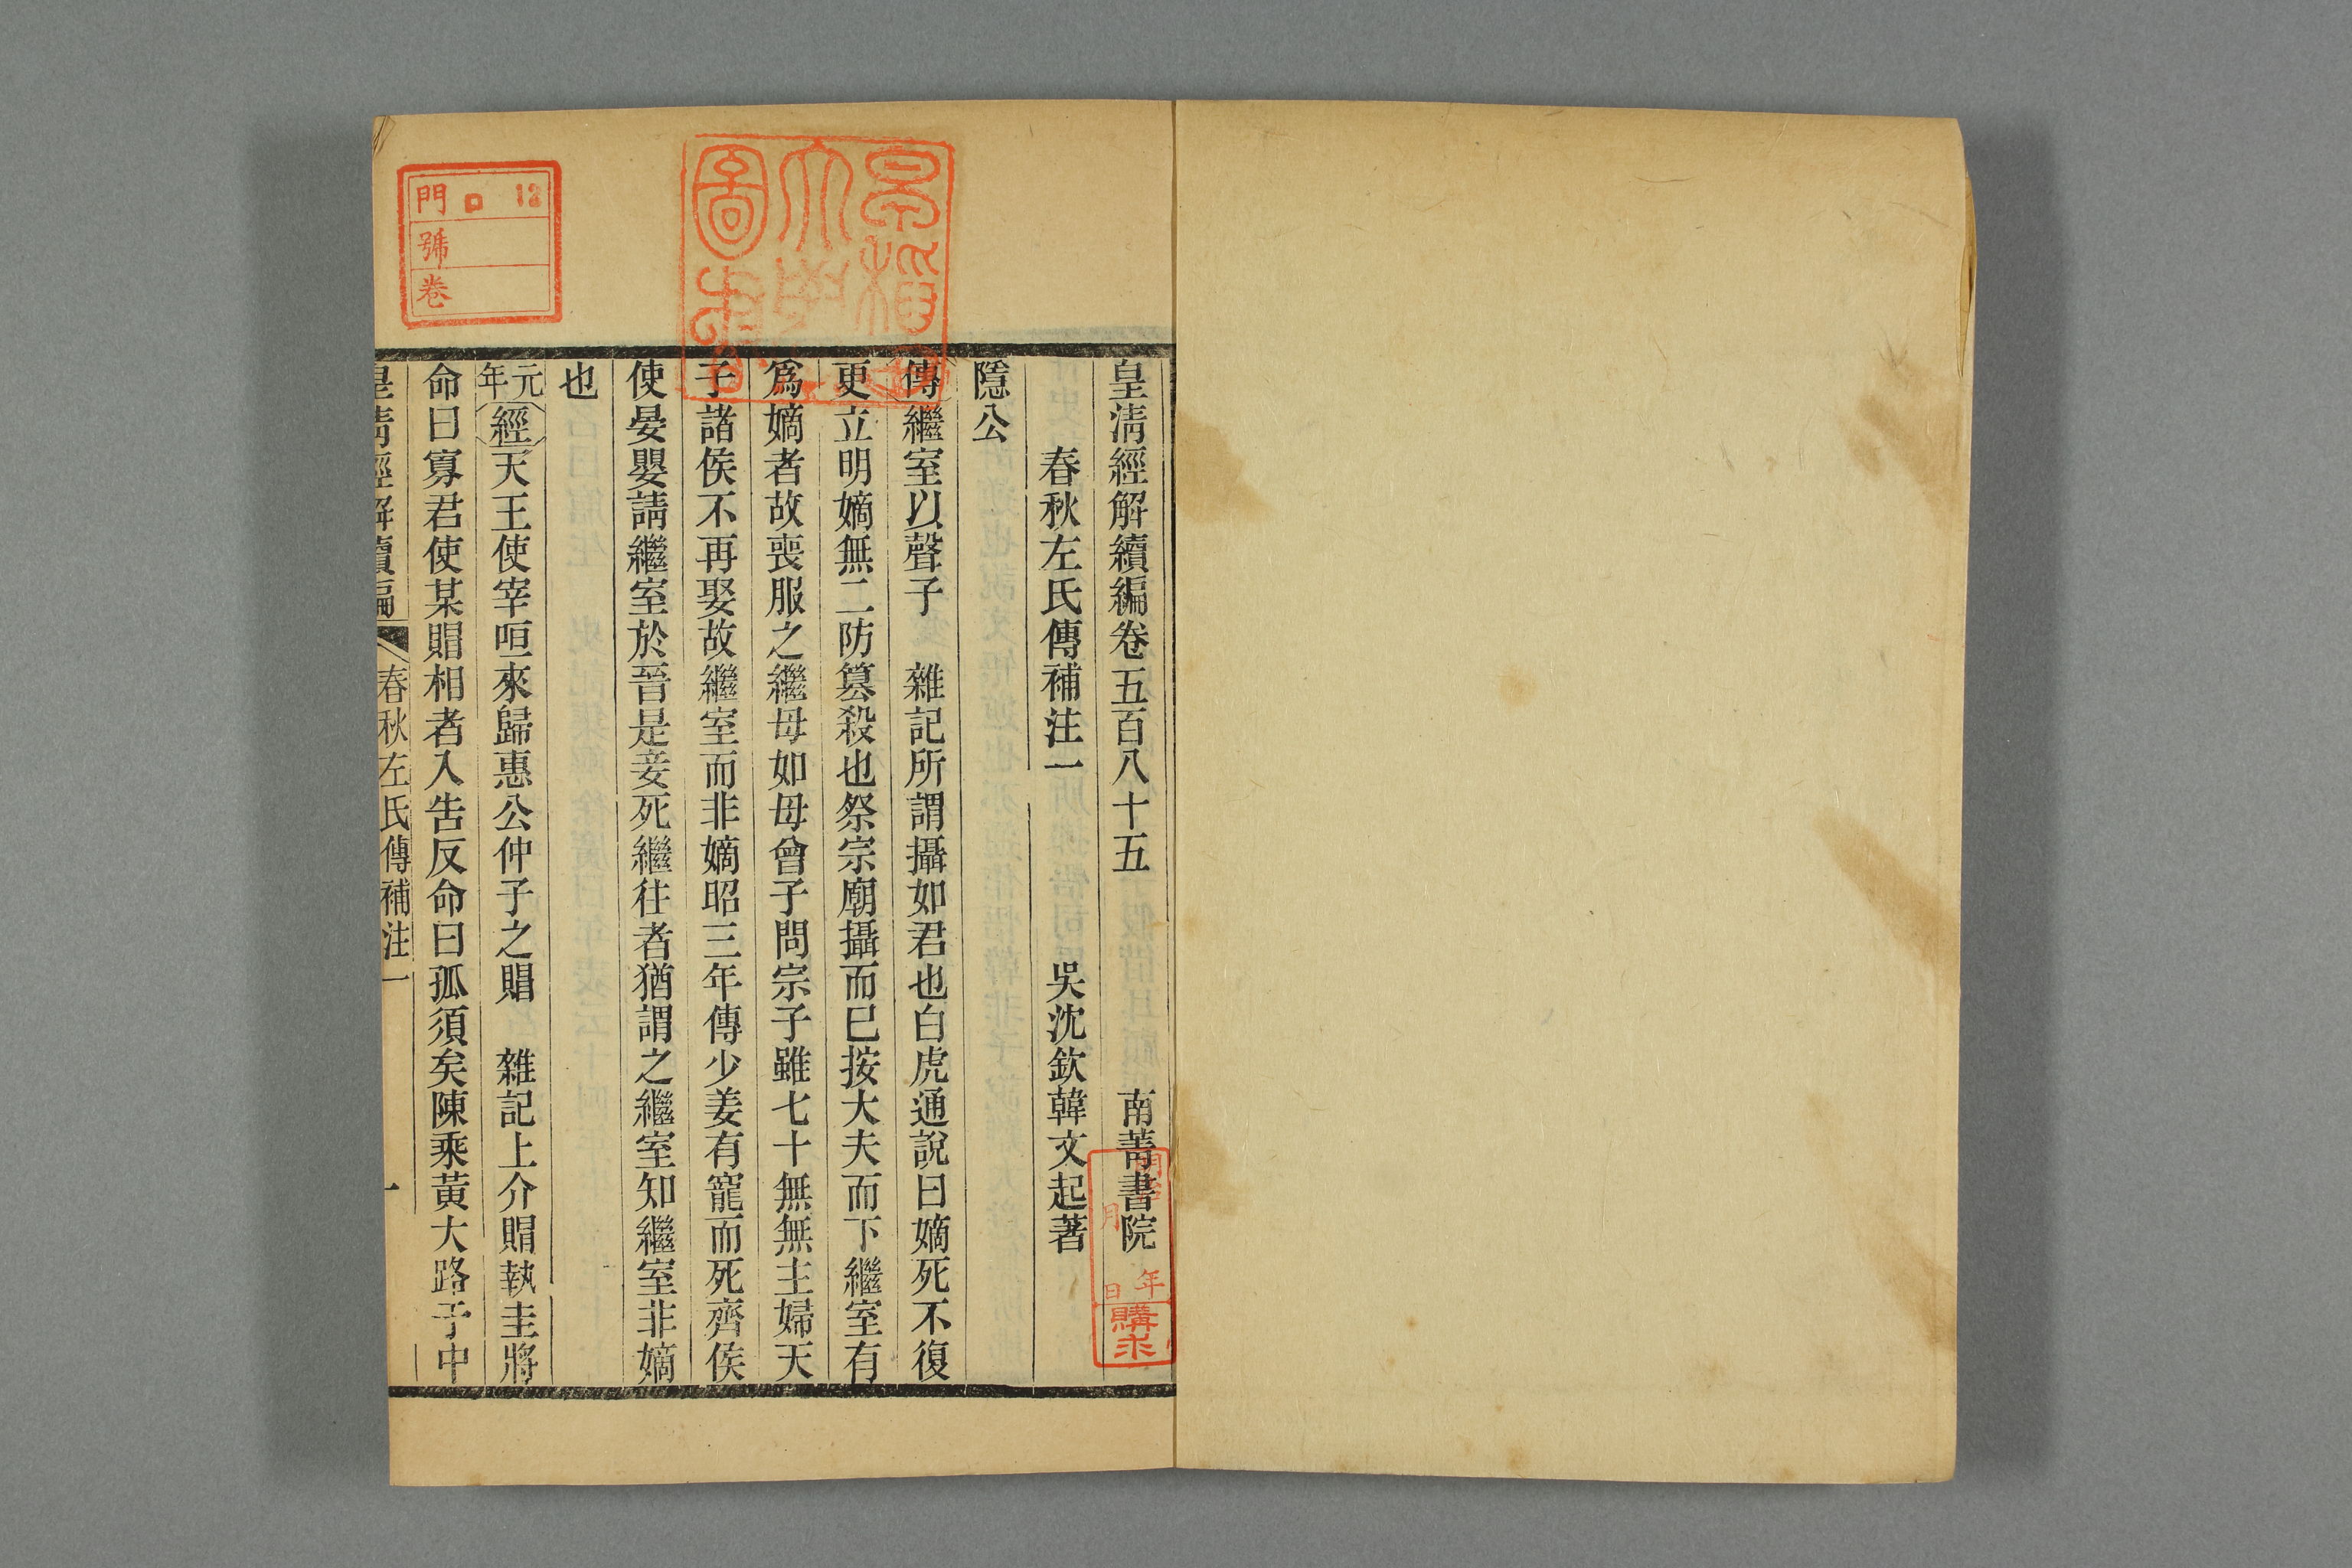 皇淸經解續編卷五百八十五　南菁書院
春秋左氏傳補注一　吳沈欽韓文起著
隱公
傳繼室以聲子　雜記所謂攝如君也白虎通說曰嫡死不復
更立明嫡無二防篡殺也祭宗廟攝而已按大夫而下繼室有
爲嫡者故喪服之繼母如母曾子問宗子雖七十無無主婦天
子諸侯不再娶故繼室而非嫡昭三年傳少姜有寵而死齊侯
使晏嬰請繼室於晉是妾死繼往者猶謂之繼室知繼室非嫡
也
元年經天王使宰咺來歸惠公仲子之賵　雜記上介賵執圭將
命曰寡君使某賵相者入告反命曰孤須矣陳乘黃大路于中
皇淸經解續編　春秋左氏傳補注一　一
門 12
號
卷
圖
年
月
日
購求